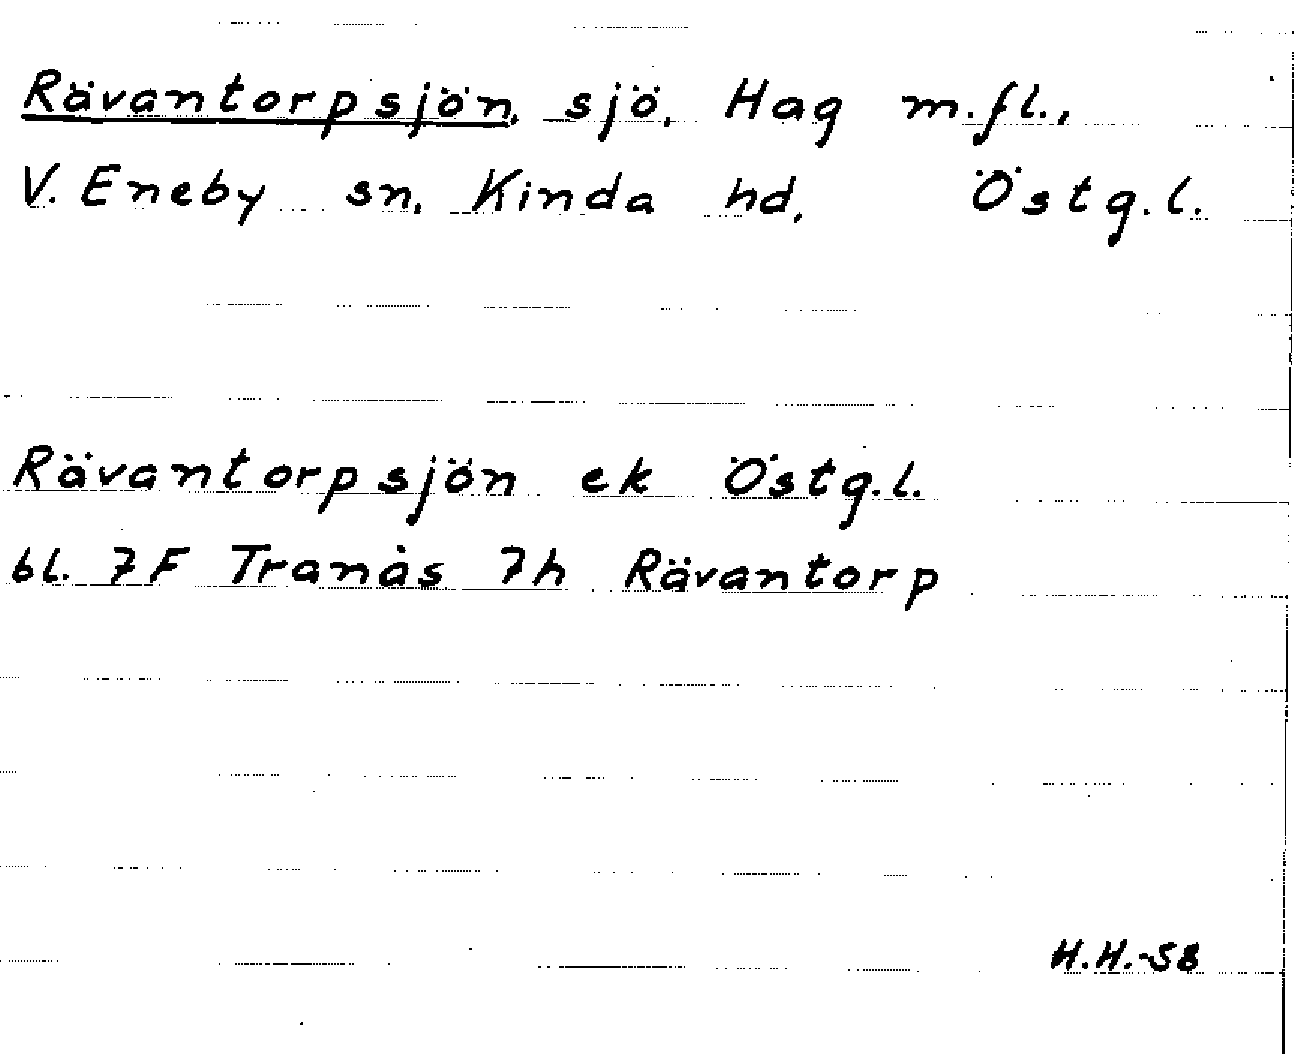 Rävantorpsjön, sjö, Hag m.fl.,
V. Eneby sn, Kinda hd, Östg.l.
Rävantorpsjön ek Östg.l.
bl. 7F Tranås 7h Rävantorp
H.H.-58